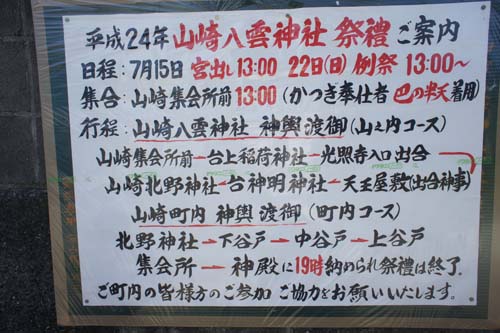 平成24年 山崎八雲神社 祭禮 ご案内
日程:7月15日 宮出し13:00 22日(日) 例祭 13:00~
集合:山崎集会所前13:00(かつぎ奉仕者 巴の半天着用)
行程:山崎八雲神社 神輿渡御(山之内コース)
山崎集会所前→台上稲荷神社→光照寺入口出合
山崎北野神社←台神明神社←天王屋敷(出合神事)
山崎町内 神輿渡御(町内コース)
北野神社→下谷戸→中谷戸→上谷戸
集会所→神殿に19時納められ祭禮は終了.
ご町内の皆様方のご参加 ご協力をお願いいたします。